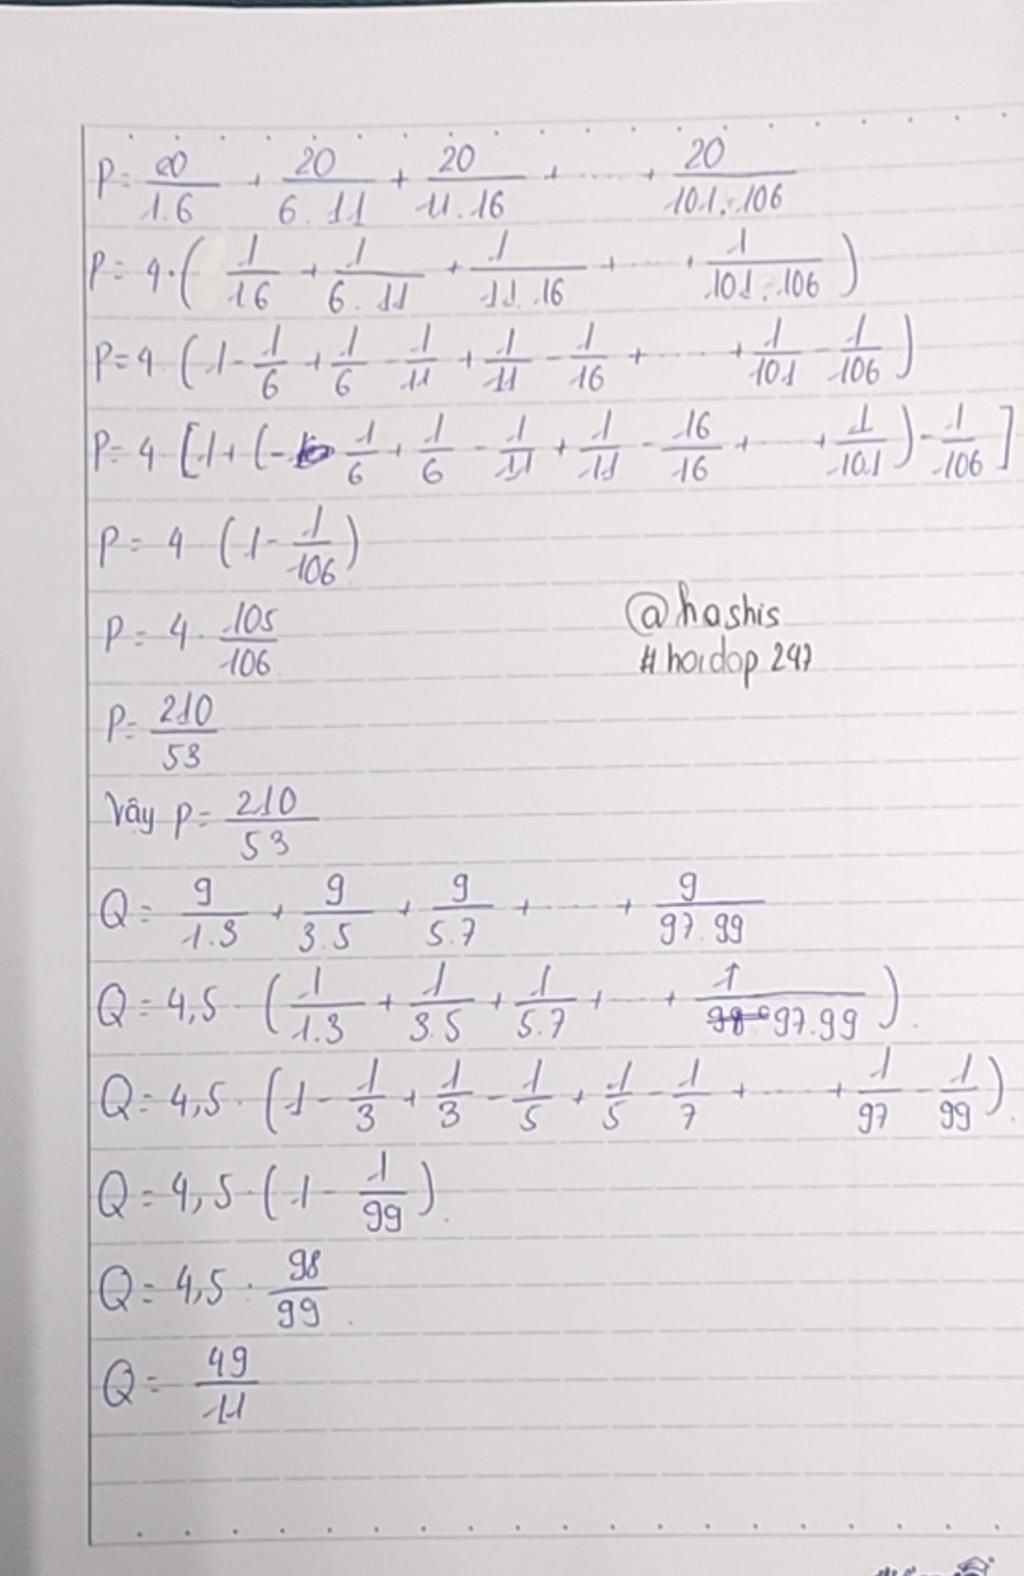 P = 20/1.6 + 20/6.11 + 20/11.16 + ..... + 20/101.106
P = 4.( 1/16 + 1/6.11 + 1/11.16 + .... + 1/101.106 )
P = 4 ( 1 - 1/6 + 1/6 - 1/11 + 1/11 - 1/16 + ..... + 1/101 - 1/106 )
P = 4 [ 1 + ( - 1/6 + 1/6 - 1/11 + 1/11 - 16/16 + .... + 1/101 ) - 1/106 ]
P = 4 ( 1 - 1/106 )
@hashis
P = 4 . 105/106
#hoidap 247
P = 210/53
Vậy P = 210/53
Q = 9/1.3 + 9/3.5 + 9/5.7 + ..... + 9/97.99
Q = 4,5 . ( 1/1.3 + 1/3.5 + 1/5.7 + .... + 1/97.99 ).
Q = 4,5 . ( 1 - 1/3 + 1/3 - 1/5 + 1/5 - 1/7 + ..... + 1/97 - 1/99 ).
Q = 4,5 . ( 1 - 1/99 ).
Q = 4,5 . 98/99 .
Q = 49/11